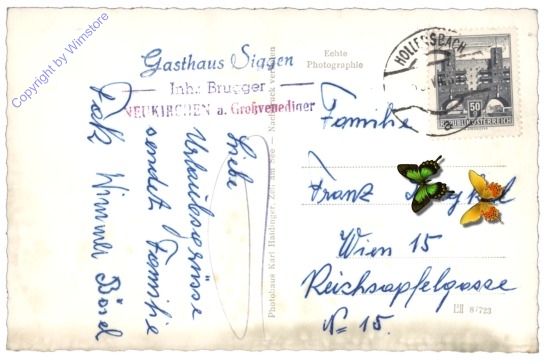 Copyright by Wimstore
Gasthaus Siggen
Inh: Brugger
NEUKIRCHEN a. Großvenediger
Liebe
Urlaubsgrüsse
sendet Familie
Wimmer
Echte
Photographie
Photohaus Karl Haidinger, Zell am See — Nachdruck verboten
HOLLERSBACH
50
REPUBLIK ÖSTERREICH
Familie
Franz
Wien 15
Reichsapfelgasse
№ 15.
87723